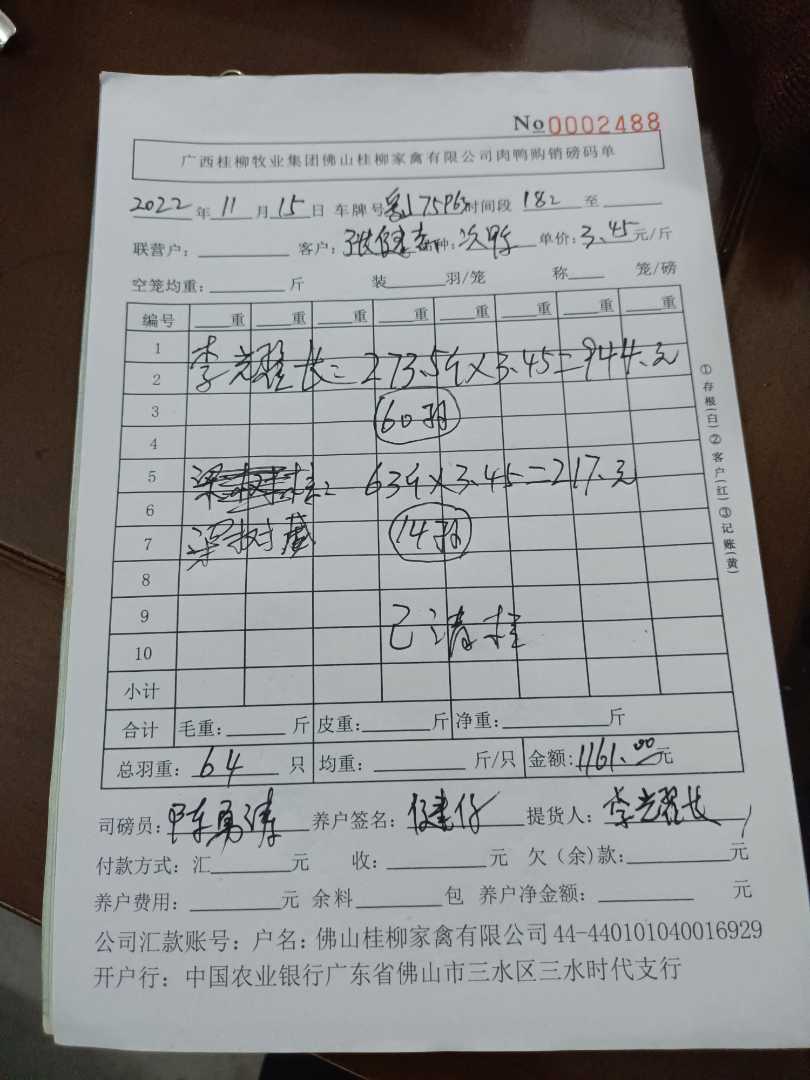 No 0002488
广西桂柳牧业集团佛山桂柳家禽有限公司肉鸭购销磅码单
2022年11月15日 车牌号 时间段 182 至
联营户: 客户: 张健 种: 次鸭 单价: 3.45元/斤
空笼均重: 斤 装 羽/笼 称 笼/磅
编号 重 重 重 重 重 重 重 重
1
李 长= 273.5斤×3.45=944.元
2
3
60羽
4
5
63斤×3.45=217.元
6
7 梁树 14羽
8
9
已清
10
小计
合计 毛重: 斤 皮重: 斤 净重: 斤
总羽重: 64 只 均重: 斤/只 金额: 1161.00元
司磅员: 陈勇涛 养户签名: 健仔 提货人: 李 长
付款方式: 汇 元 收: 元 欠(余)款: 元
养户费用: 元 余料 包 养户净金额: 元
公司汇款账号: 户名: 佛山桂柳家禽有限公司 44-440101040016929
开户行: 中国农业银行广东省佛山市三水区三水时代支行
①存根(白)②客户(红)③记账(黄)